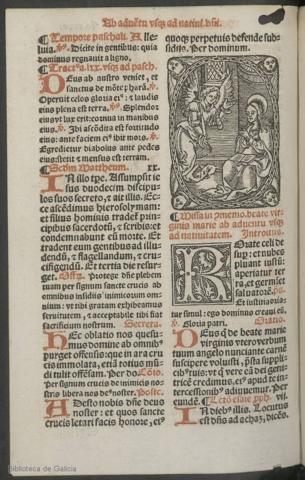 Ab aduẽtu vsq; ad natiui. dñi.
¶ Tempore paschali. Alle
luia. Dicite in gentibus: quia
dominus regnauit a ligno.
¶ Tract⁹ a .lxx. vsq; ad pasch.
Deus ab austro veniet, et
sanctus de mõte pharã.
Operuit celos gloria ei⁹: ⁊ laudis
eius plena est terra. Splendor
eius vt lux erit: cornua in manibus
eius. Ibi ascõdita est fortitudo
eius: ante faciem ei⁹ ibit mors.
Egredietur diabolus ante pedes
eius: stetit ⁊ mensus est terram.
¶ Scdm Mattheum. xx.
In illo tpe. Assumpsit ie
sus duodecim discipu-
los suos secreto, ⁊ ait illis. Ec-
ce ascẽdimus hierosolymam:
et filius hominis tradet prin-
cipibus sacerdotũ, ⁊ scribis: et
condemnabunt eũ morte. Et
tradent eum gentibus ad illu-
dendũ, ⁊ flagellandum, ⁊ cru-
cifigendũ. Et tertia die resur-
get. Protege dñe plebem
tuam per signum sancte crucis ab
omnibus insidiis inimicorum om-
nium: vt tibi gratam exhibeamus
seruitutem, ⁊ acceptabile tibi fiat
sacrificium nostrum. Secreta.
Hec oblatio nos quesu-
mus domine ab omnib⁹
purget offensis: que in ara cru-
cis immolata, etiã totius mũ-
di tulit offẽsam. Per do. Cõio.
Per signum crucis de inimicis no-
stris libera nos de⁹ noster. Postc.
Adesto nobis dñe deus
noster: et quos sancte
crucis letari facis honore, ei⁹
quoque perpetuis defende sub-
sidiis. Per dominum.
¶ Missa in cõmemo. beate vir
ginis marie ab aduentu vsq;
ad natiuitatem. Introitus.
Rorate celi de
super: ⁊ nubes
pluant iustũ:
aperiatur ter
ra, et germiet
saluatorẽ.
Et iustitia oria-
tur simul: ego dominus creaui eũ.
Gloria patri. Oratio.
Deus q̃ de beate marie
virginis vtero verbum
tuum angelo nunciante carnẽ
suscipere voluisti, p̃sta suppli-
cib⁹ tuis: vt q̃ vere eã dei geni-
tricẽ credimus, ei⁹ apud te in-
tercessionib⁹ adiuuemur. Per
¶ Lctõ esaie pph.
In dieb⁹ illis. Locutus
est dñs ad achaz, dicẽs.
Biblioteca de Galicia